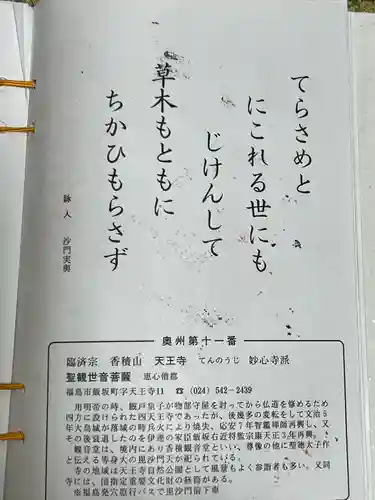 てらさめと
にこれる世にも
じけんして
草木もともに
ちかひもらさず
詠人 沙門実興
奥州第十一番
臨済宗 香積山 天王寺 てんのうじ 妙心寺派
聖観世音菩薩 恵心僧都
福島市飯坂町字天王寺11 ☎ (024) 542-2439
用明帝の時、厩戸皇子が物部守屋を討ってから仏道を修めるため
四方に設けられた四天王寺であったが、後幾多の変転をして文治5
年大鳥城が落城の時兵火により焼失、応安7年智覆禅師再興し、又
その後衰退したのを伊達の家臣飯坂右近将監宗康天正3年再興。
観音堂は、境内にあり香積観音堂といい、尊像の他に聖徳太子作
と伝える等身大の毘沙門天が祀られている。
寺の地域は天王寺自然公園として風景もよく参詣者も多い。又同
寺には、国指定重要文化財の経筒がある。
※福島発穴原行バスで毘沙門前下車